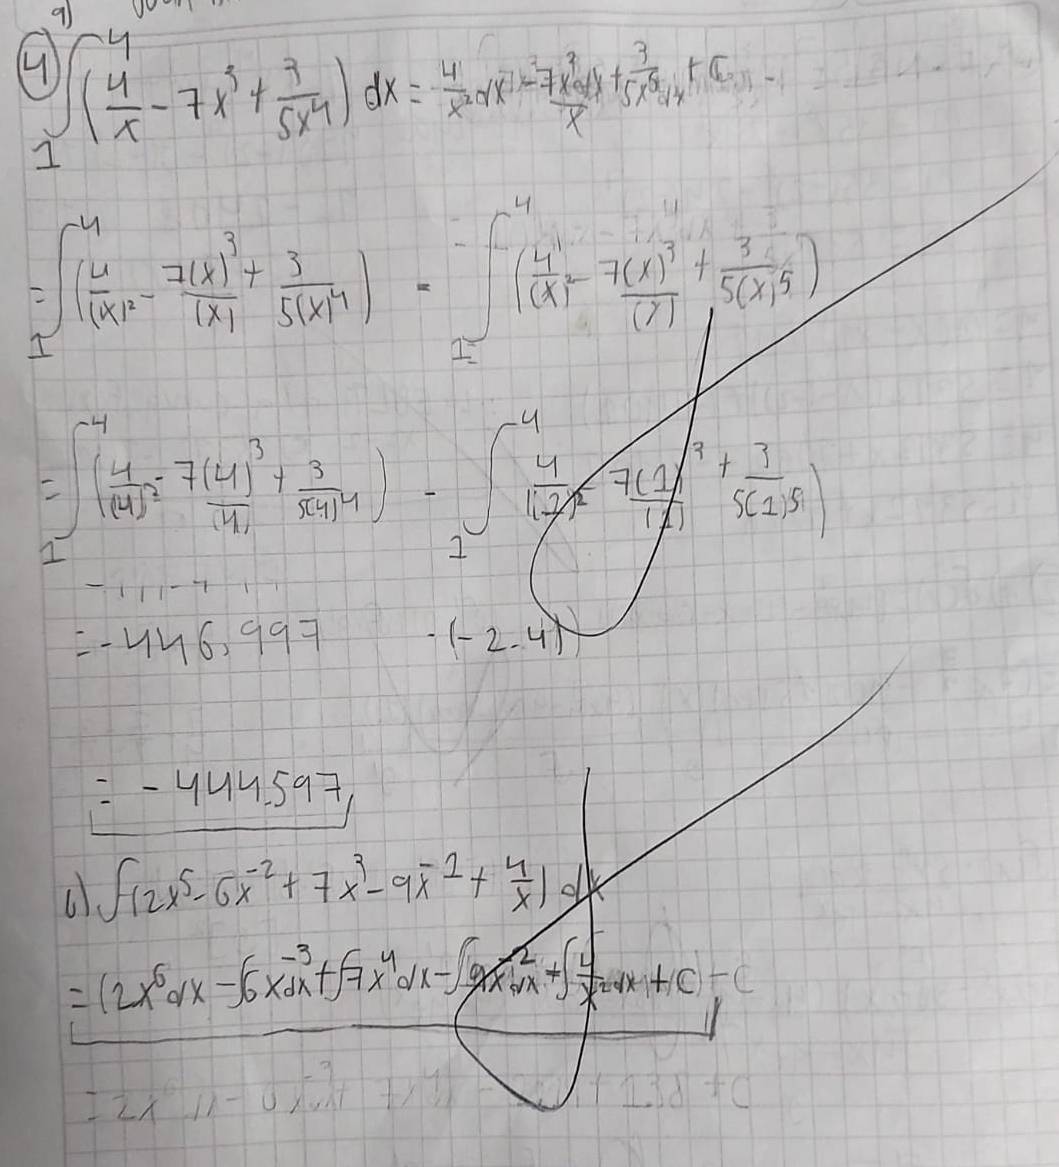 a)
④ ∫₁⁴ (4/x - 7x³ + 3/5x⁴) dx = 4/x² dx - 7x³dx/x + 3/5x⁵ dx + C
= ∫₁⁴ (4/(x)² - 7(x)³/(x) + 3/5(x)⁴) - ∫₁⁴ (4/(x)² - 7(x)³/(x) + 3/5(x)⁵)
= ∫₁⁴ (4/(4)² - 7(4)³/(4) + 3/5(4)⁴) - ∫₁⁴ 4/(1)² - 7(1)³/(1) + 3/5(1)⁵)
= -446,997 - (-2.4)
= -444.597
b) ∫(2x⁵ - 6x⁻² + 7x³ - 9x⁻¹ + 4/x) dx
= (2x⁶dx - ∫6x⁻³dx + ∫7x⁴dx - ∫9x⁻²dx + ∫4/x² dx + C)